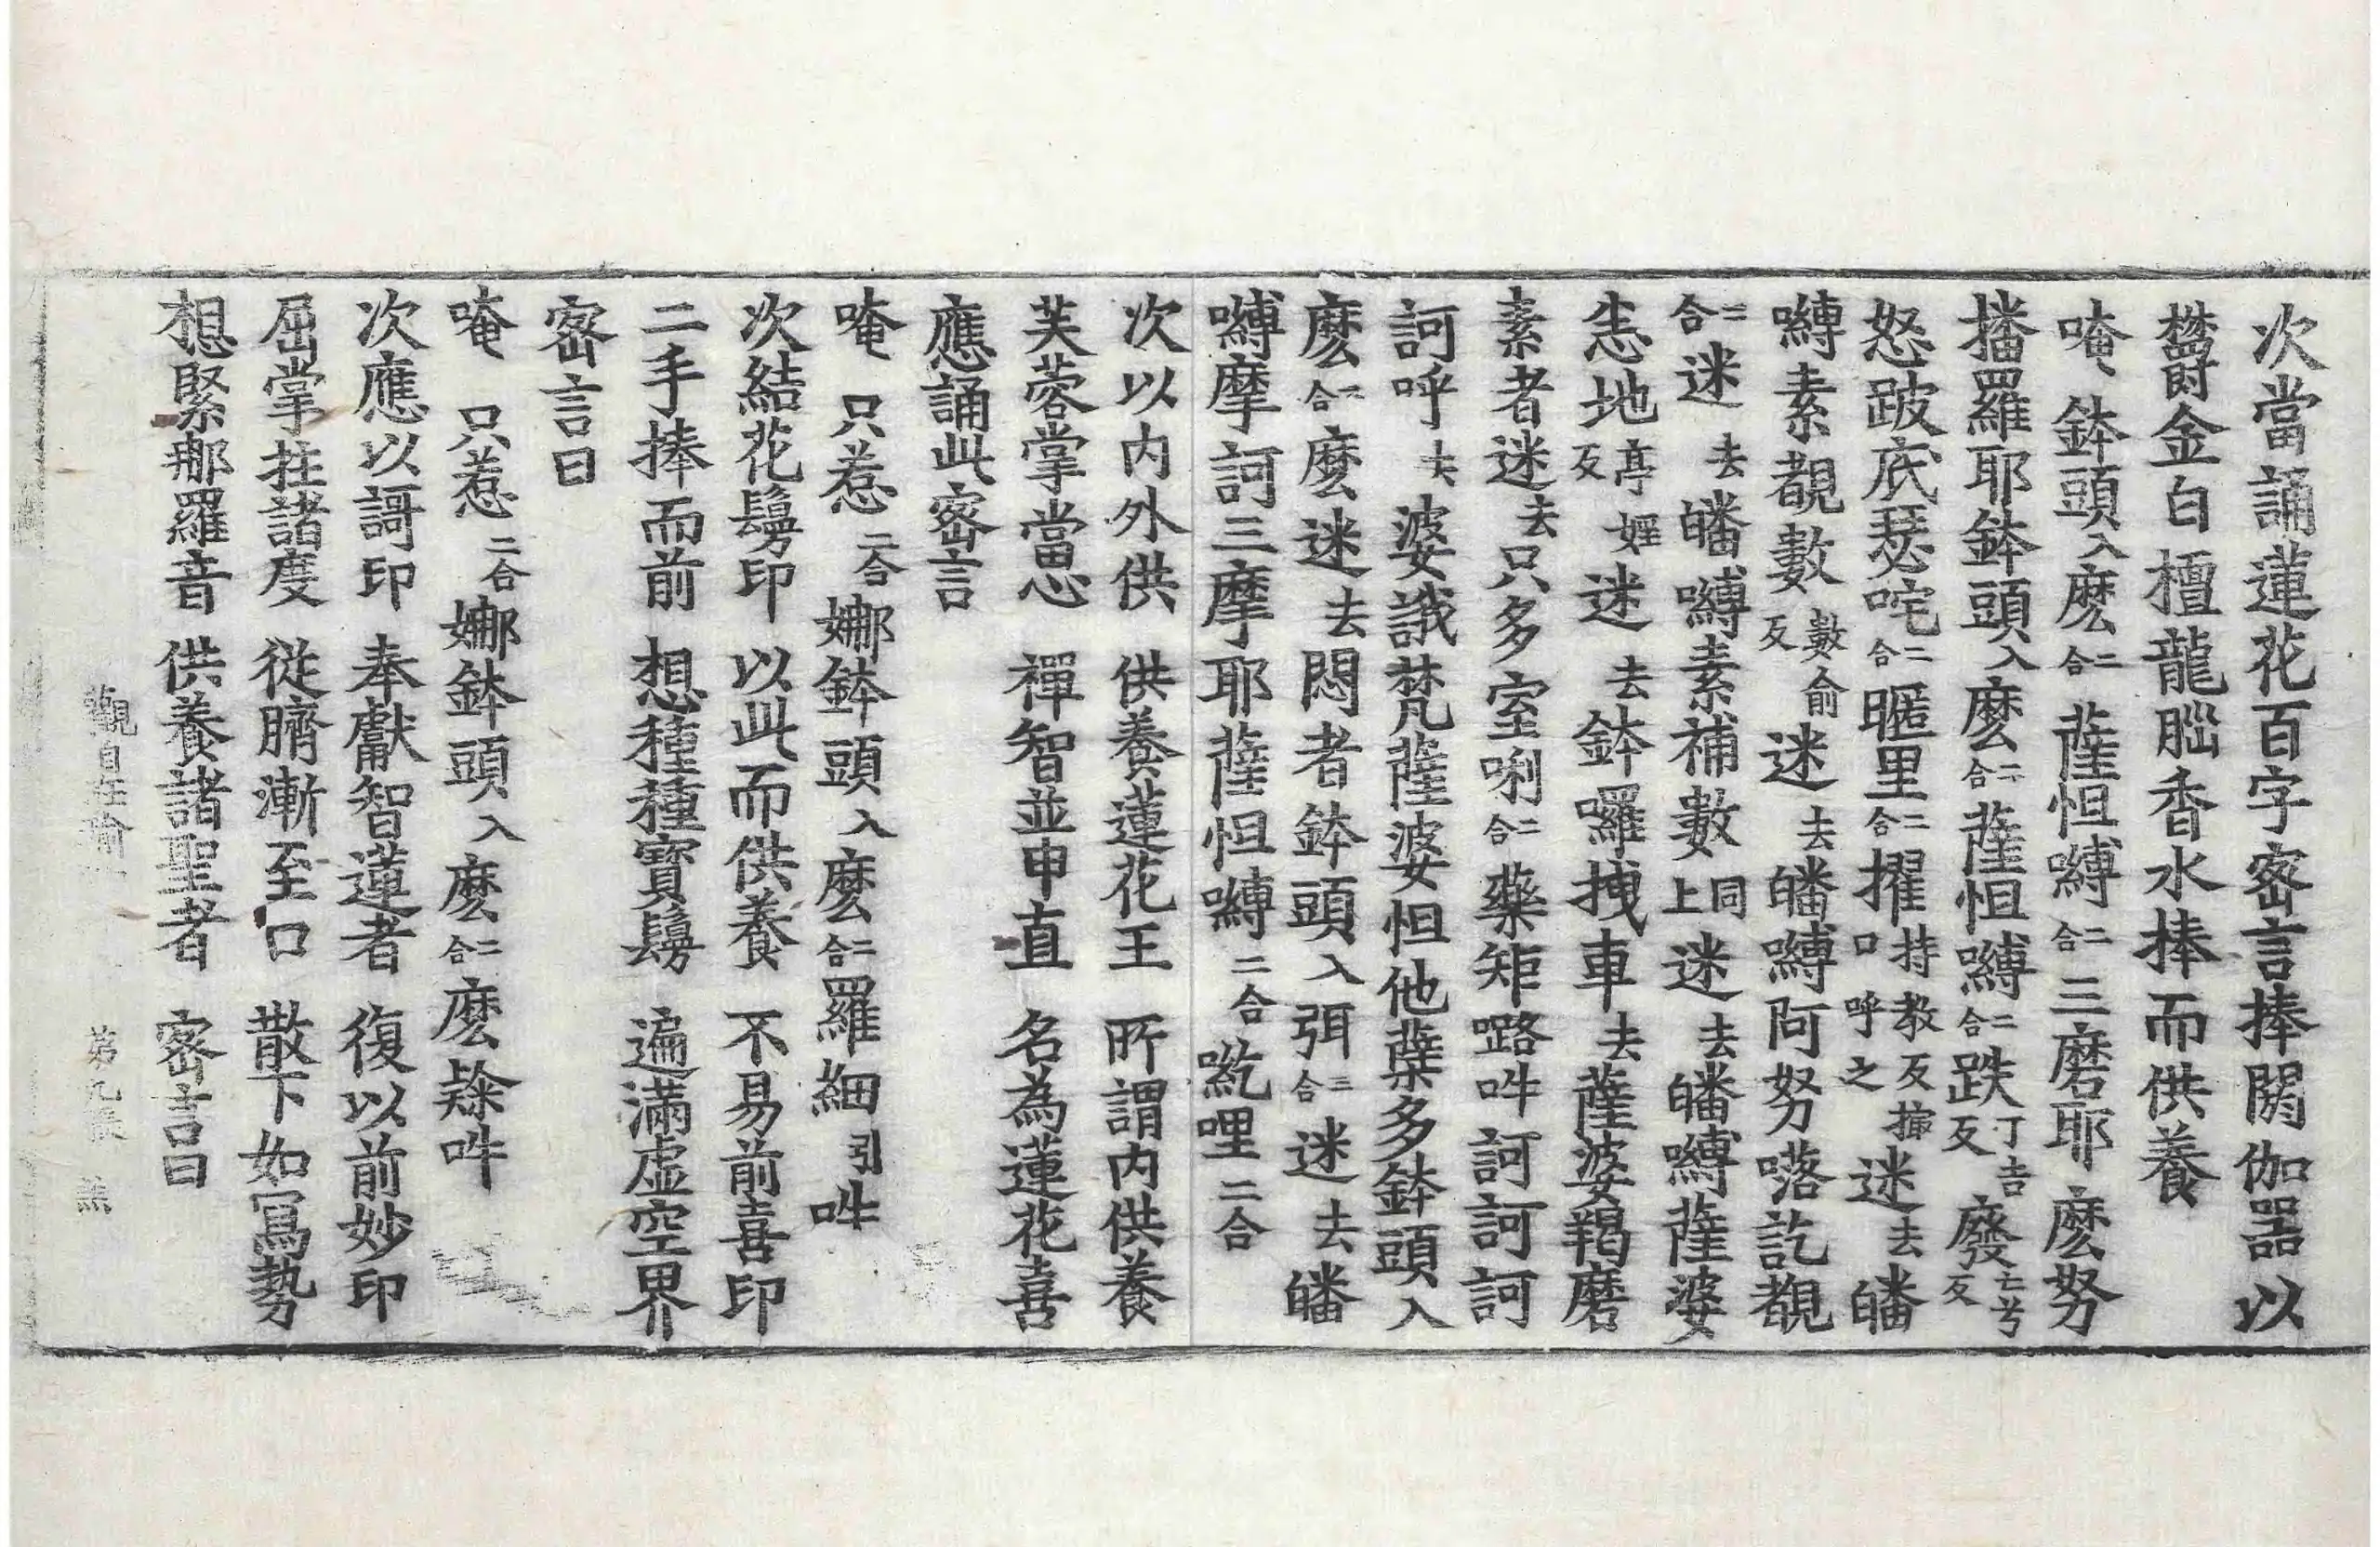 次當誦蓮花百字密言捧閼伽器以
欝金白檀龍腦香水捧而供養
唵鉢頭入麽二合薩怛嚩二合三磨耶麽努
播羅耶鉢頭入麽二合薩怛嚩二合跌丁吉反廢亡兮反
怒跛底瑟咜二合暱里二合擢持教反搱口呼之迷去皤
嚩素覩數數俞反迷去皤嚩阿努嚃訖覩
二合迷去皤嚩素補數同上迷去皤嚩薩婆
悉地亭婬反迷去鉢囉拽車去薩婆羯磨
素者迷去只多室唎二合藥矩嚕吽訶訶訶
訶呼去婆誐梵薩婆怛他蘖多鉢頭入
麽二合麽迷去悶者鉢頭入弭三合迷去皤
嚩摩訶三摩耶薩怛嚩二合嘰哩二合
次以内外供　供養蓮花王　所謂内供養
芙蓉掌當心　禪智並申直　名為蓮花喜
應誦此密言
唵　只惹二合娜鉢頭入麽二合羅細引吽
次結花鬘印　以此而供養　不易前喜印
二手捧而前　想種種寶鬘　遍滿虛空界
密言曰
唵　只惹二合娜鉢頭入麽二合麽隸吽
次應以謌印　奉獻智蓮者　復以前妙印
屈掌拄諸度　從臍漸至口　散下如寫勢
想緊那羅音　供養諸聖者　密言曰
觀自在瑜　第九張　羔